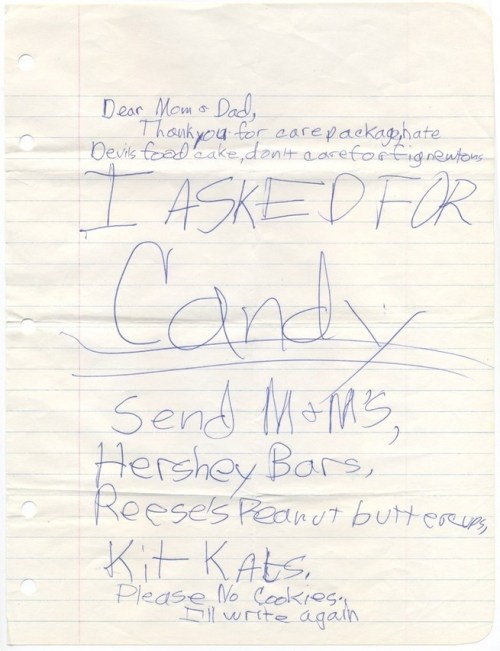 Dear Mom & Dad,
Thankyou for care package, hate
Devils food cake, don't care for fig newtons
I ASKED FOR
Candy
Send M&M's,
Hershey Bars,
Reese's Peanut butter cups,
Kit Kats.
Please No Cookies.
I'll write again